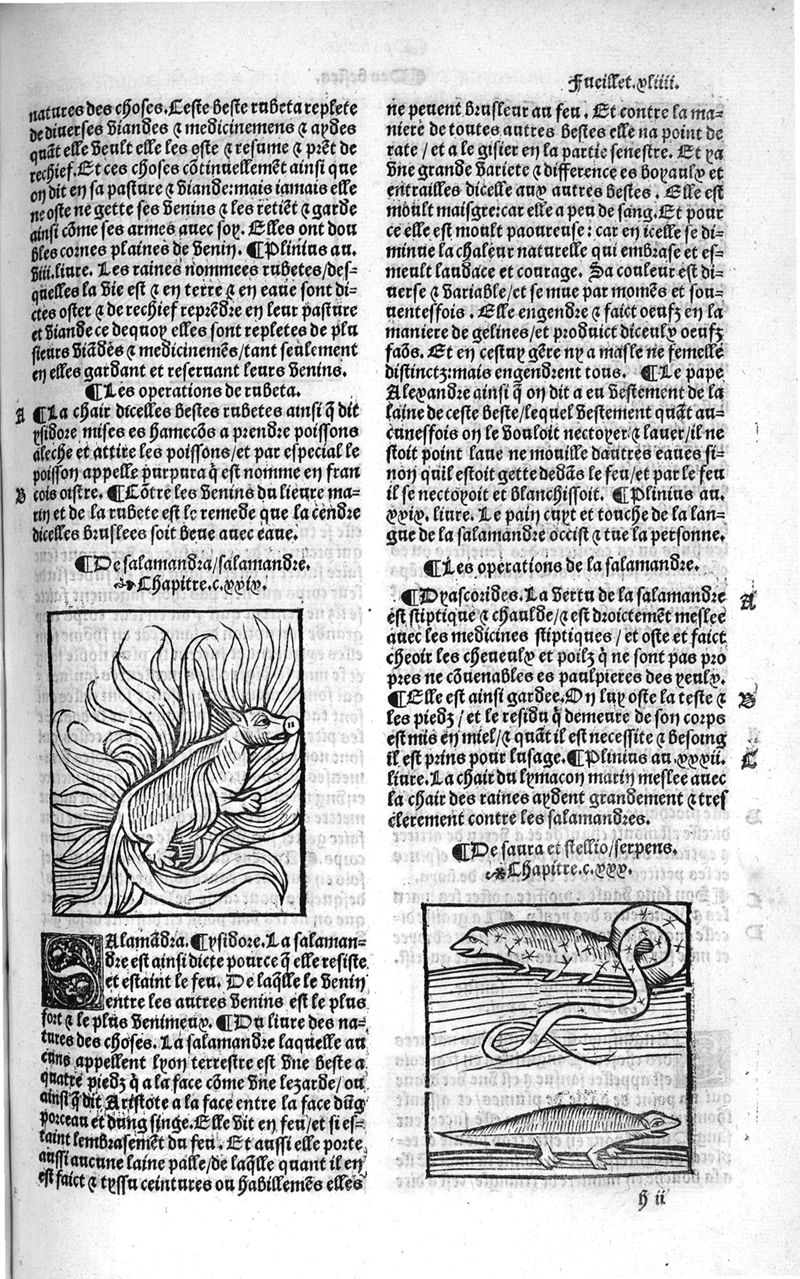 Fueillet.xliiii.
natures des choses. Ceste beste rubeta replete
de diuerses viandes ⁊ medicinemens ⁊ aydes
quãt elle veult elle les oste ⁊ resume ⁊ prẽt de
rechief. Et ces choses cõtinuellemẽt ainsi que
on dit en sa pasture ⁊ viande: mais iamais elle
ne oste ne gette ses venins ⁊ les retiẽt ⁊ garde
ainsi cõme ses armes auec soy. Elles ont dou
bles cornes plaines de venin. ¶Plinius au.
viii. liure. Les raines nommees rubetes/des-
quelles la vie est ⁊ en terre ⁊ en eaue sont di-
ctes oster ⁊ de rechief reprẽdre en leur pasture
et viande ce dequoy elles sont repletes de plu
sieurs viãdes ⁊ medicinemẽs/tant seulement
en elles gardant et reseruant leurs venins.
¶Les operations de rubeta.
A ¶La chair dicelles bestes rubetes ainsi q̃ dit
ysidore mises es hamecõs a prendre poissons
aleche et attire les poissons/et par especial le
poisson appelle purpura q̃ est nomme en fran
B cois oistre. ¶Cõtre les venins du lieure ma-
rin et de la rubete est le remede que la cendre
dicelles bruslees soit beue auec eaue.
¶De salamandra/salamandre.
Chapitre.c.xxix.
SAlamãdra. ¶ysidore. La salaman-
dre est ainsi dicte pource q̃ elle resiste
et estaint le feu. De laq̃lle le venin
entre les autres venins est le plus
fort ⁊ le plus venimeux. ¶Du liure des na-
tures des choses. La salamandre laquelle au
cuns appellent lyon terrestre est vne beste a
quatre piedz q̃ a la face cõme vne lezarde/ou
ainsi q̃ dit Aristote a la face entre la face dũg
porceau et dung singe. Elle vit en feu/et si es-
taint lembrasemẽt du feu. Et aussi elle porte
aussi aucune laine palle/de laq̃lle quant il en
est faict ⁊ tyssu ceintures ou habillemẽs elles
ne peuent brusleur au feu. Et contre la ma-
niere de toutes autres bestes elle na point de
rate/et a le gisier en la partie senestre. Et ya
vne grande variete ⁊ difference es boyaulx et
entrailles dicelle aux autres bestes. Elle est
moult maisgre: car elle a peu de sang. Et pour
ce elle est moult paoureuse: car en icelle se di-
minue la chaleur naturelle qui embrase et es-
meult laudace et courage. Sa couleur est di-
uerse ⁊ variable/et se mue par momẽs et sou-
uentesfois. Elle engendre ⁊ faict oeufz en la
maniere de gelines/et produict diceulx oeufz
faõs. Et en cestuy gẽre ny a masle ne femelle
distinctz: mais engendrent tous. ¶Le pape
Alexandre ainsi q̃ on dit a eu vestement de la
laine de ceste beste/lequel vestement quãt au-
cunesfois on le vouloit nectoyer ⁊ lauer/il ne
stoit point laue ne mouille dautres eaues si-
non quil estoit gette dedãs le feu/et par le feu
il se nectoyoit et blanchissoit. ¶Plinius au.
xxix. liure. Le pain cuyt et touche de la lan-
gue de la salamandre occist ⁊ tue la personne.
¶Les operations de la salamandre.
¶Dyascorides. La vertu de la salamandre A
est stiptique ⁊ chaulde/⁊ est droictemẽt meslee
auec les medicines stiptiques/et oste et faict
cheoir les cheueulx et poilz q̃ ne sont pas pro
pres ne cõuenables es paulpieres des yeulx.
¶Elle est ainsi gardee. On luy oste la teste ⁊ B
les piedz/et le residu q̃ demeure de son corps
est mis en miel/⁊ quãt il est necessite ⁊ besoing
il est prins pour lusage. ¶Plinius au.xxxii. C
liure. La chair du lymacon marin meslee auec
la chair des raines aydent grandement ⁊ tres
clerement contre les salamandres.
¶De saura et stellio/serpens.
Chapitre.c.xxx.
h ii